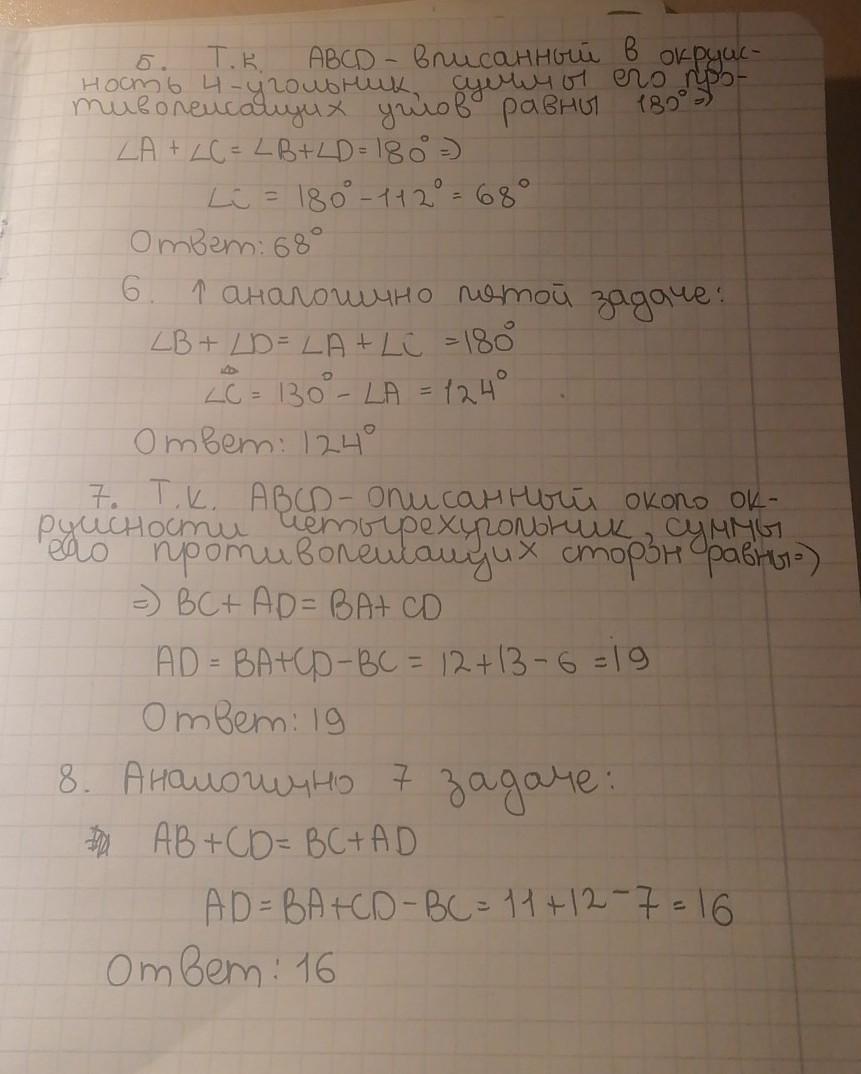 5. Т.к. ABCD - вписанный в окруж-
ность 4-угольник, суммы его про-
тиволежащих углов равны 180° =>
∠A + ∠C = ∠B + ∠D = 180° =>
∠C = 180° - 112° = 68°
Ответ: 68°
6. ↑ аналогично пятой задаче:
∠B + ∠D = ∠A + ∠C = 180°
∠C = 130° - ∠A = 124°
Ответ: 124°
7. Т.к. ABCD - описанный около ок-
ружности четырехугольник, суммы
его противолежащих сторон равны =>
=> BC + AD = BA + CD
AD = BA + CD - BC = 12 + 13 - 6 = 19
Ответ: 19
8. Аналогично 7 задаче:
AB + CD = BC + AD
AD = BA + CD - BC = 11 + 12 - 7 = 16
Ответ: 16